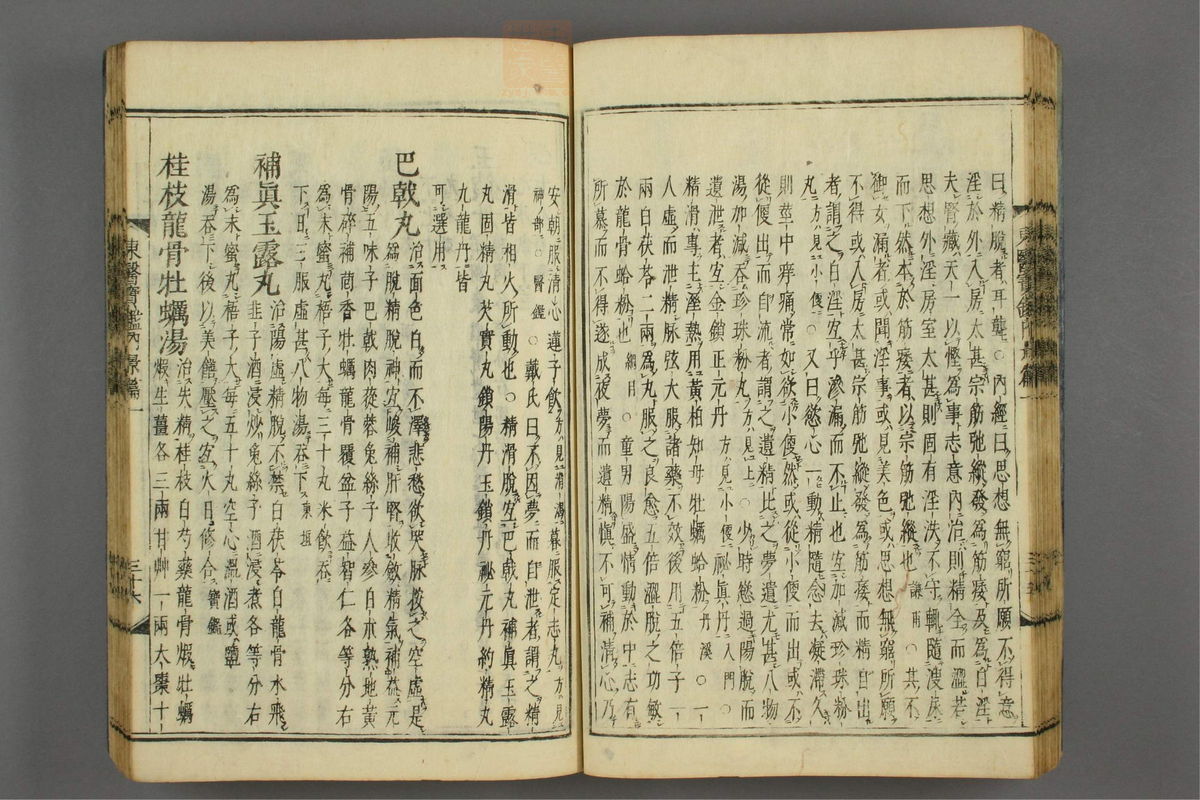 曰精脫者耳聾○內經曰思想無窮所願不得意
淫於外入房太甚宗筋弛縱發為筋痿及為白淫
夫腎藏天一以慳為事志意內治則精全而澀若
思想外淫房室太甚則固有淫泆不守輒隨溲尿
而下然本於筋痿者以宗筋弛縱也 謙甫 ○其不
御女漏者或聞淫事或見美色或思想無窮所願
不得或入房太甚宗筋弛縱發為筋痿而精自出
者謂之白淫宜乎滲漏而不止也宜加減珍珠粉
丸 方見小便 ○又曰慾心一動精隨念去凝滯久
則莖中痒痛常如欲小便然或從小便而出或不
從便出而自流者謂之遺精比之夢遺尤甚八物
湯加減吞珍珠粉丸 方見上 ○少時慾過陽脫而
遺泄者宜金鎖正元丹 方見小便 祕眞丹 入門 ○
精滑專主濕熱用黃柏知母牡蠣蛤粉 丹溪 ○一
人虛而泄精脉弦大服諸藥不效後用五倍子一
兩白茯苓二兩為丸服之良愈五倍澀脫之功敏
於龍骨蛤粉也 綱目 ○童男陽盛情動於中志有
所慕而不得遂成夜夢而遺精愼不可補淸心乃
東醫寶鑑內景篇一
安朝服淸心蓮子飮 方見消渴 暮服定志丸 方見神部 ○醫鑑
滑皆相火所動也○精滑脫宜巴戟丸補眞玉露
丸固精丸芡實丸鎖陽丹玉鎖丹祕元丹約精丸
九龍丹皆
可選用
巴戟丸 治面色白而不澤悲愁欲哭脉按之空虛是
為脫精脫神宜峻補肝腎收斂精氣補益元
陽五味子巴戟肉蓯蓉兔絲子人參白朮熟地黃
骨碎補茴香牡蠣龍骨覆盆子益智仁各等分右
為末蜜丸梧子大每三十丸米飮吞
下日三服虛甚八物湯吞下 東垣
補眞玉露丸 治陽虛精脫不禁白茯苓白龍骨水飛
韭子酒浸炒兔絲子酒浸煮各等分右
為末蜜丸梧子大每五十丸空心溫酒或鹽
湯吞下後以美饍壓之宜火日修合 寶鑑
桂枝龍骨牡蠣湯 治失精桂枝白芍藥龍骨煆牡蠣
煆生薑各三兩甘艸一兩太棗十
東醫寶鑑內景篇一
三十六